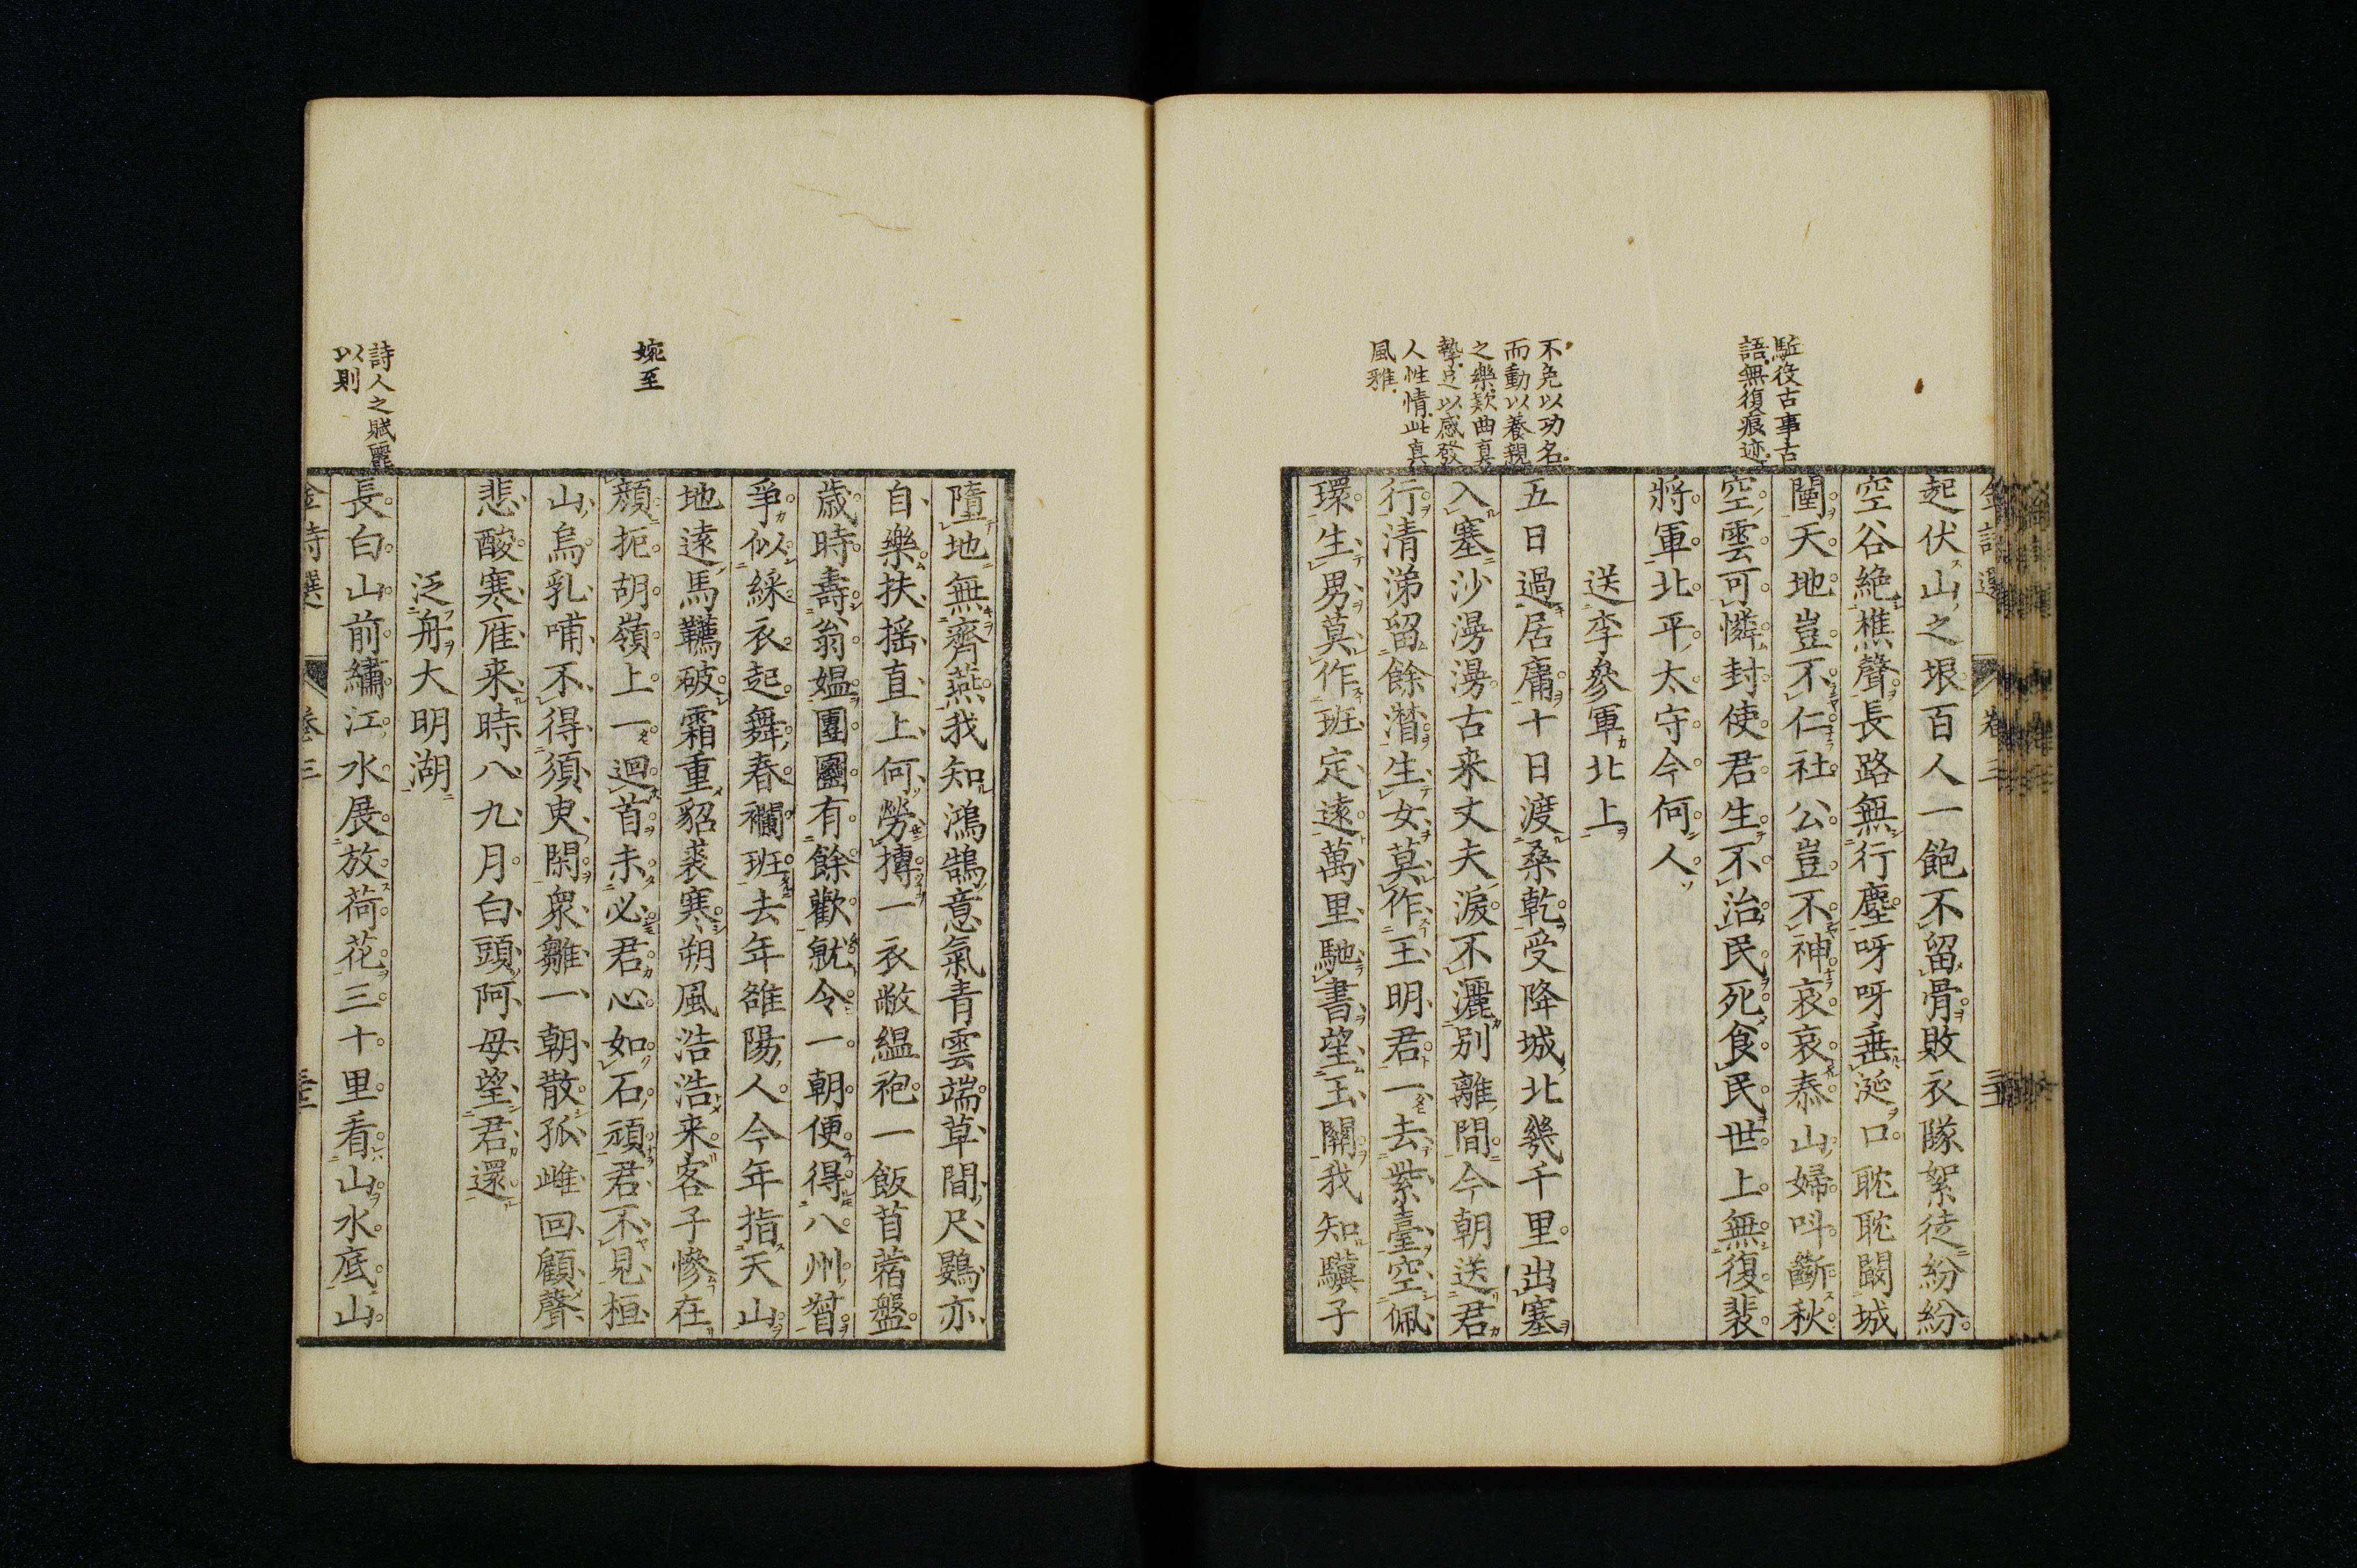 駈役古事古
語無復痕迹
不免以功名
而動以養親
之樂欵曲真
摯足以感發
人性情此真
風雅
起伏山之垠百人一飽不留骨敗衣隊絮徒紛紛
空谷絶樵聲長路無行塵呀呀垂涎口眈眈闞城
闉天地豈不仁社公豈不神哀哀泰山婦呌斷秋
空雲可憐封使君生不治民死食民世上無復裴
將軍北平太守今何人
送李參軍北上
五日過居庸十日渡桑乾受降城北幾千里出塞
入塞沙漫漫古来丈夫淚不灑別離間今朝送君
行清涕留餘潸生女莫作王明君一去紫臺空佩
環生男莫作班定遠萬里馳書望玉關我知驥子
婉至
詩人之賦麗
以則
墮地無齊燕我知鴻鵠意氣青雲端草間尺鷃亦
自樂扶搖直上何勞摶一衣敝緼袍一飯苜蓿盤
歲時壽翁媼團圞有餘歡就令一朝便得八州督
爭似綵衣起舞春斕班去年雒陽人今年指天山
地遠馬韉破霜重貂裘寒朔風浩浩来客子慘在
顏扼胡嶺上一迴首未必君心如石頑君不見桓
山烏乳哺不得須臾閑衆雛一朝散孤雌回顧聲
悲酸寒雁来時八九月白頭阿母望君還
泛舟大明湖
長白山前繡江水展放荷花三十里看山水底山
金詩選 卷三